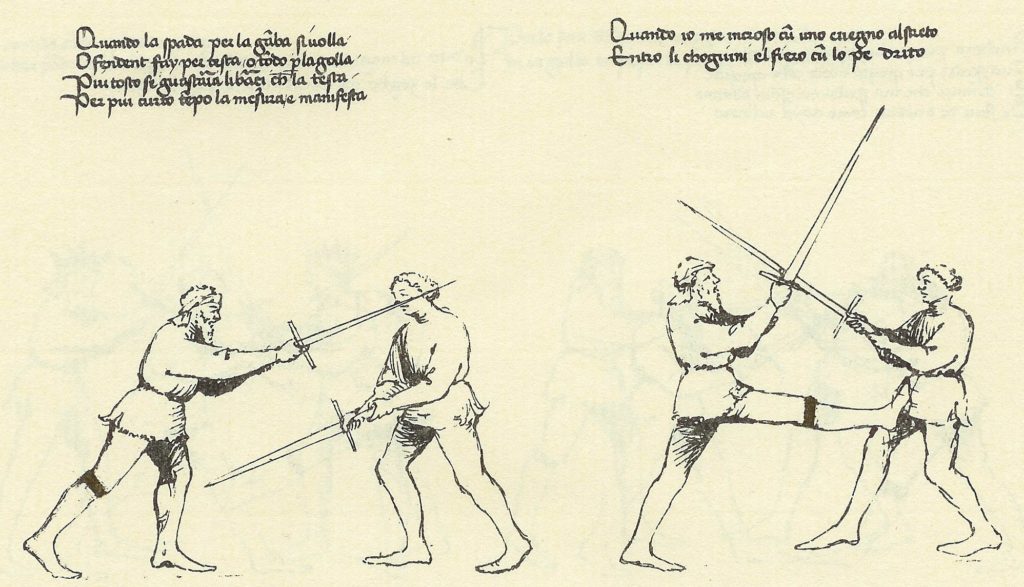 Quando la spada per la gãba si uolla
O fendent fay per testa, o todo p la golla
Piu tosto se guastaria li braci ch la testa
Per piu curto tẽpo la mesura, e manifesta
Quando io me incroso cũ uno e uegno al streto
Entro li choglimi el fiero cũ lo pe drito